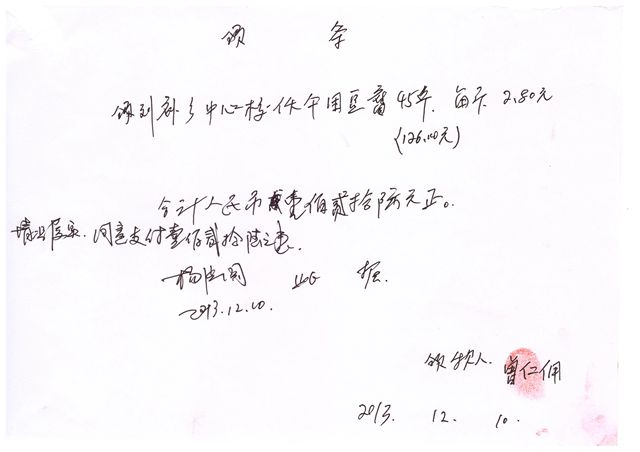 领 条
领到 乡中心校伙午用豆腐45斤，每斤2.80元
(126.00元)
合计人民币壹佰贰拾陆元正。
情况属实，同意支付壹佰贰拾陆元。
2013.12.10.
领款人 曾仁佣
2013. 12. 10.